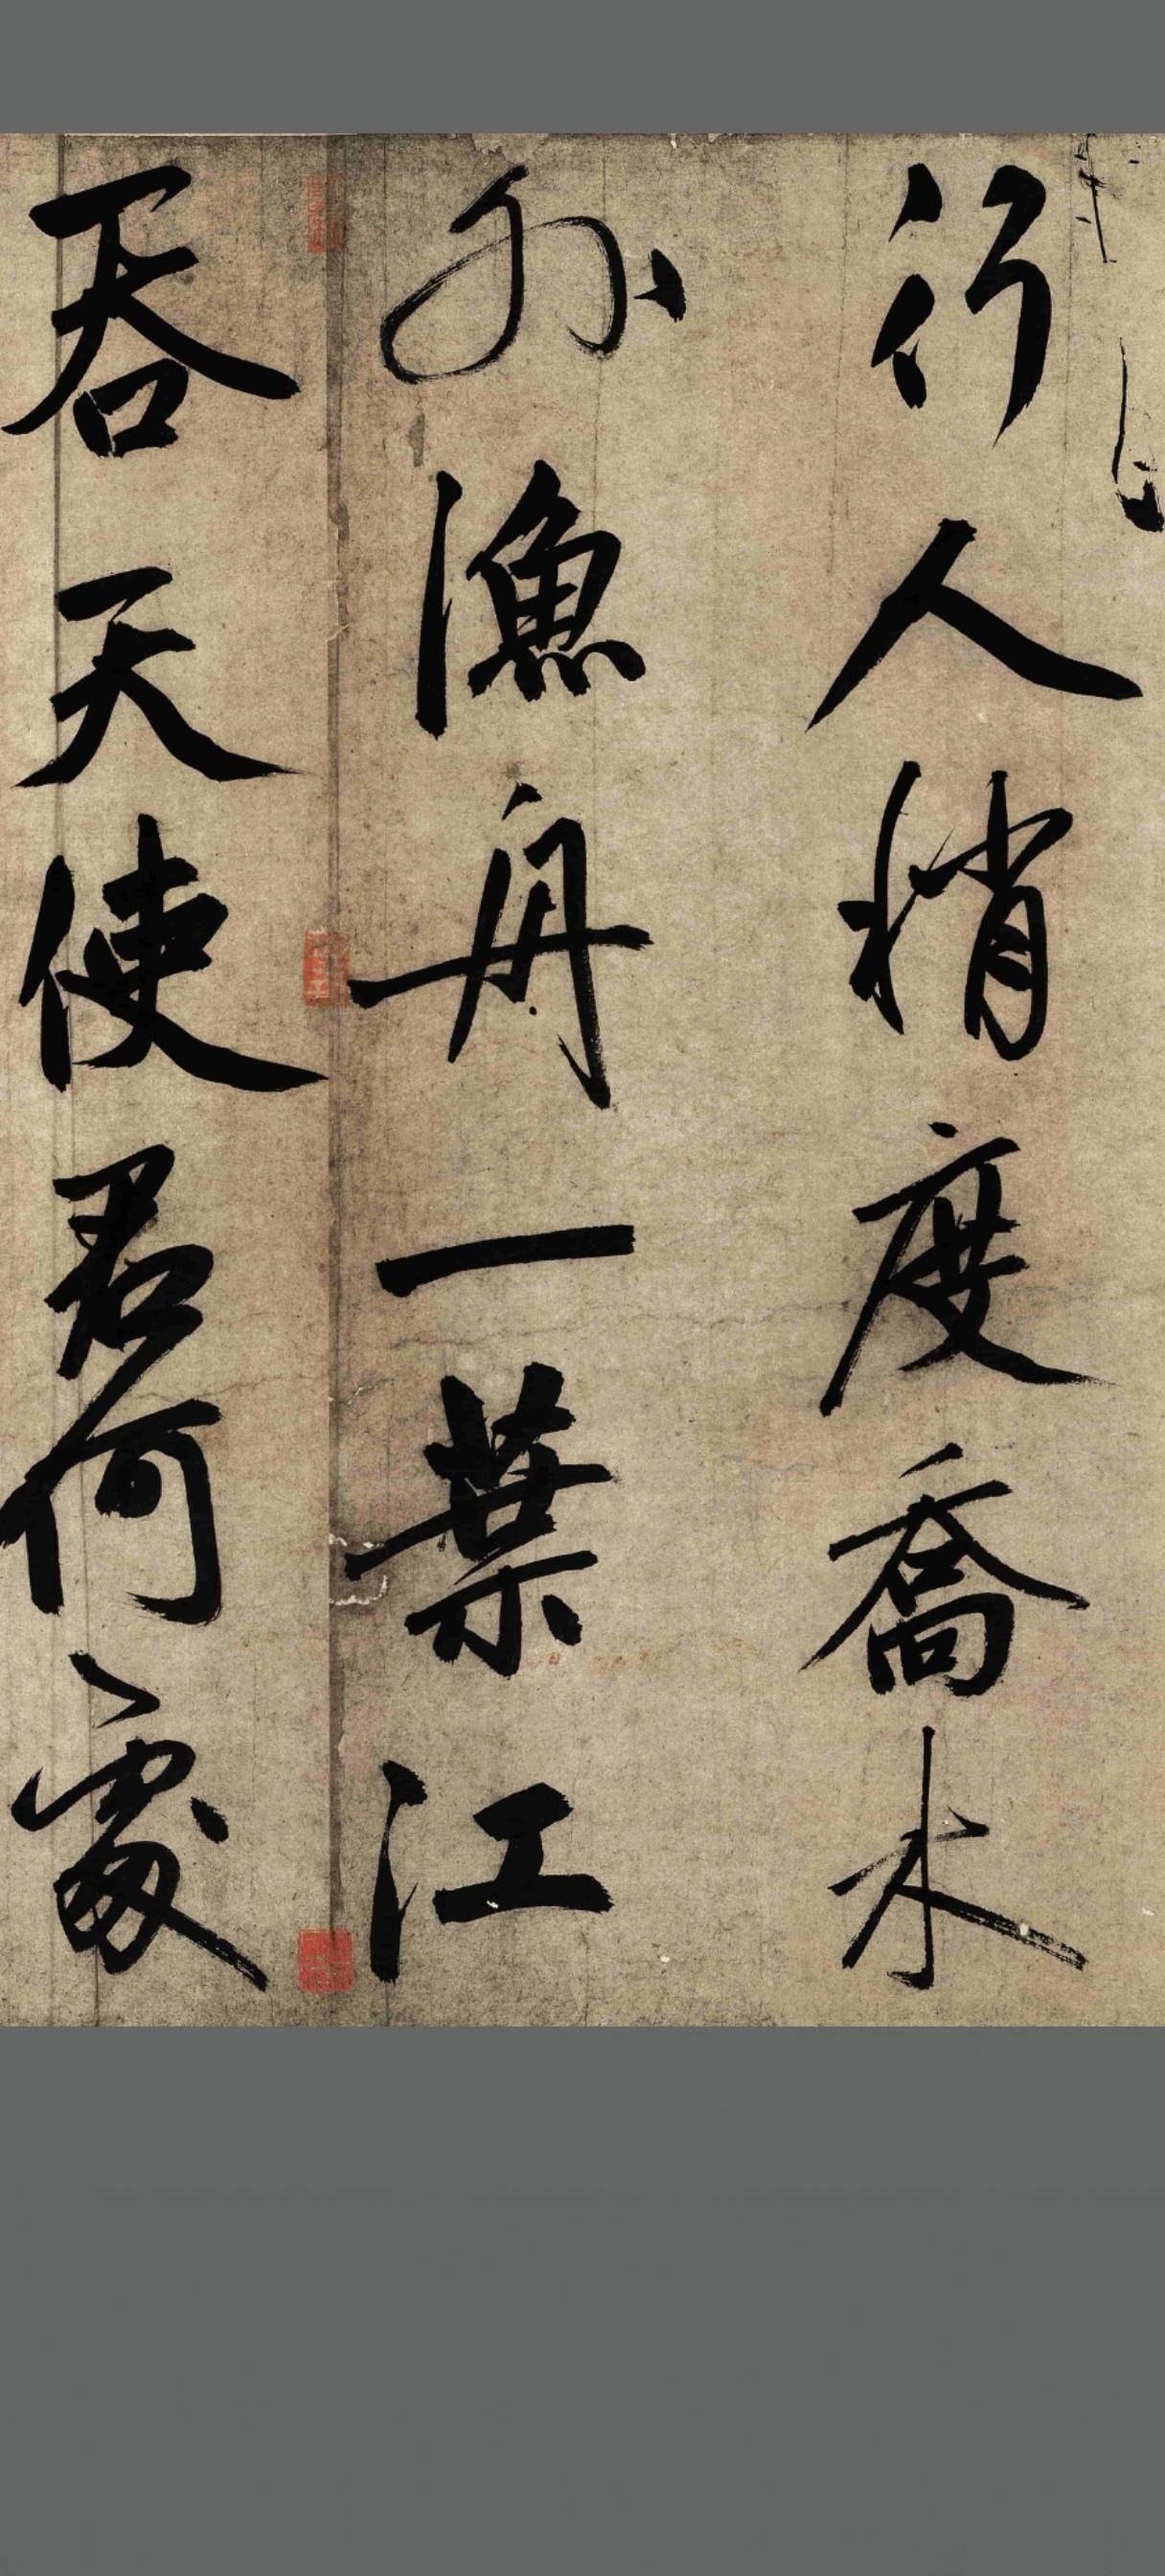 行人稍度喬木
外漁舟一葉江
吞天使君何處